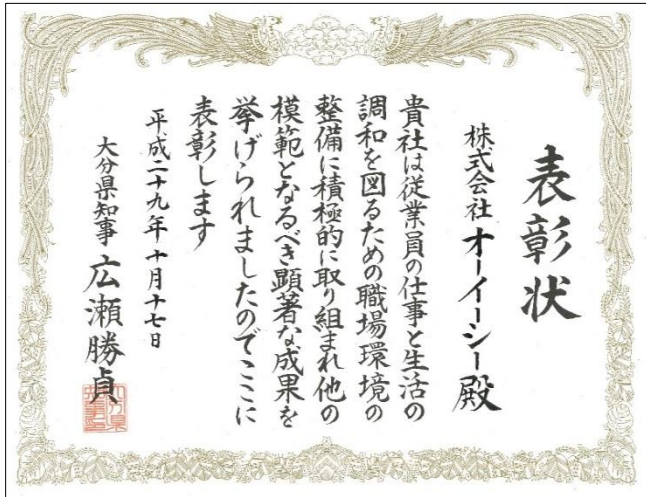 表彰状
株式会社 オーイーシー 殿
貴社は従業員の仕事と生活の
調和を図るための職場環境の
整備に積極的に取り組まれ他の
模範となるべき顕著な成果を
挙げられましたのでここに
表彰します
平成二十九年十月十七日
大分県知事 広瀬勝貞